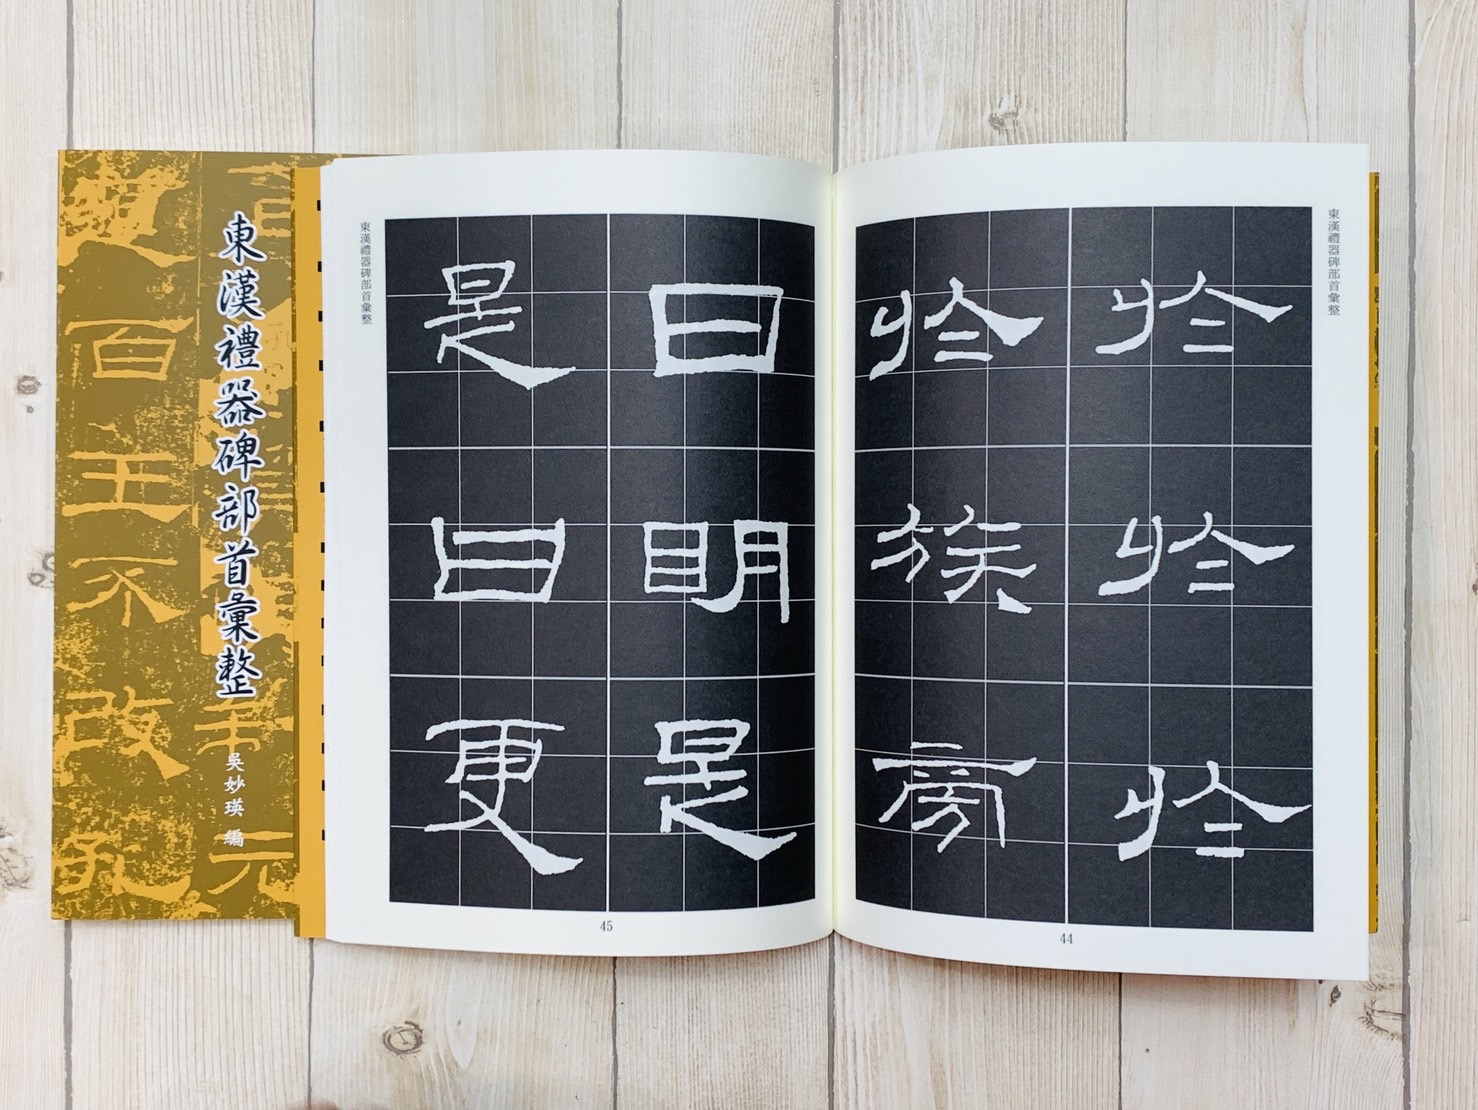 東漢禮器碑部首彙整
吳妙瑛 編
百王不改孔
元
東漢禮器碑部首彙整
於於於
於族旁
44
日明是
是曰更
東漢禮器碑部首彙整
45